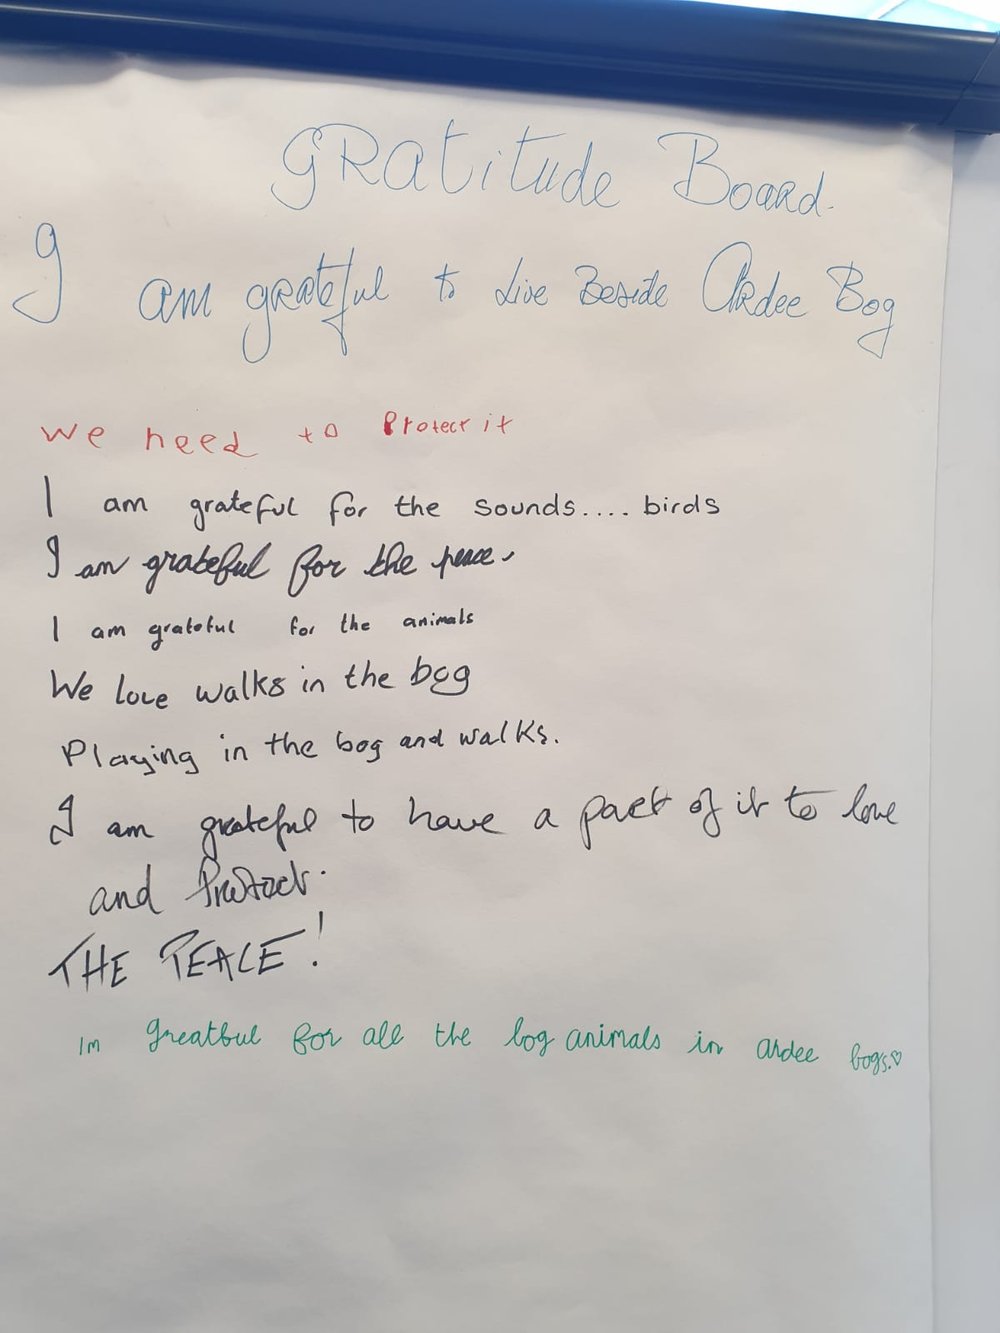 gRatitude Board.
I am grateful to Live Beside Ardee Bog
we need to Protect it
I am grateful for the sounds.... birds
I am grateful for the peace.
I am grateful for the animals
We love walks in the bog
Playing in the bog and walks.
I am grateful to have a part of it to love
and Protect.
THE PEACE!
Im greatful for all the bog animals in ardee bogs.♡